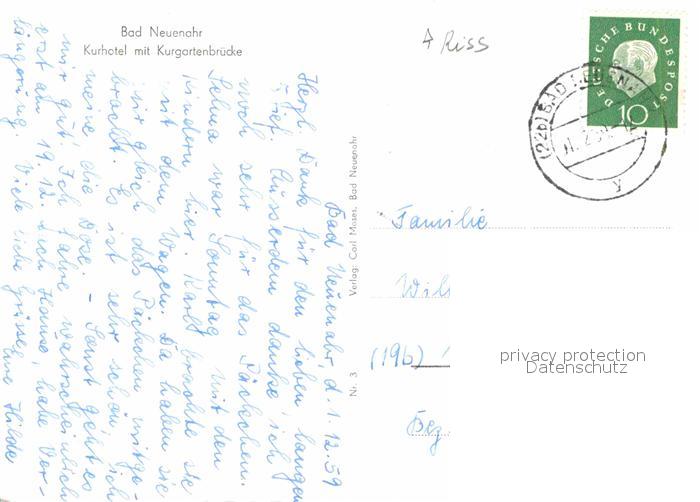 Bad Neuenahr
Kurhotel mit Kurgartenbrücke
Riss
DEUTSCHE BUNDESPOST
10
(22b) BAD NEUEN
Verlag: Carl Moses, Bad Neuenahr
Nr. 3
Familie
Wil
(19b)
Bez.
privacy protection
Datenschutz
Bad Neuenahr, d. 1.12.59
Herzl. Dank für den lieben langen
Brief. Ausserdem danke ich
noch sehr für das Päckchen.
Selma war Sonntag mit den
Kindern hier. Karl brachte sie
mit dem Wagen. Da haben sie
mir gleich das Päckchen mitge-
bracht. Es ist sehr schön, ich
meine die Dose. - Sonst geht es
mir gut. Ich fahre wahrscheinlich
erst am 19.12. nach Hause, habe Ver-
längerung. Viele liebe Grüsse
Eure Hilde